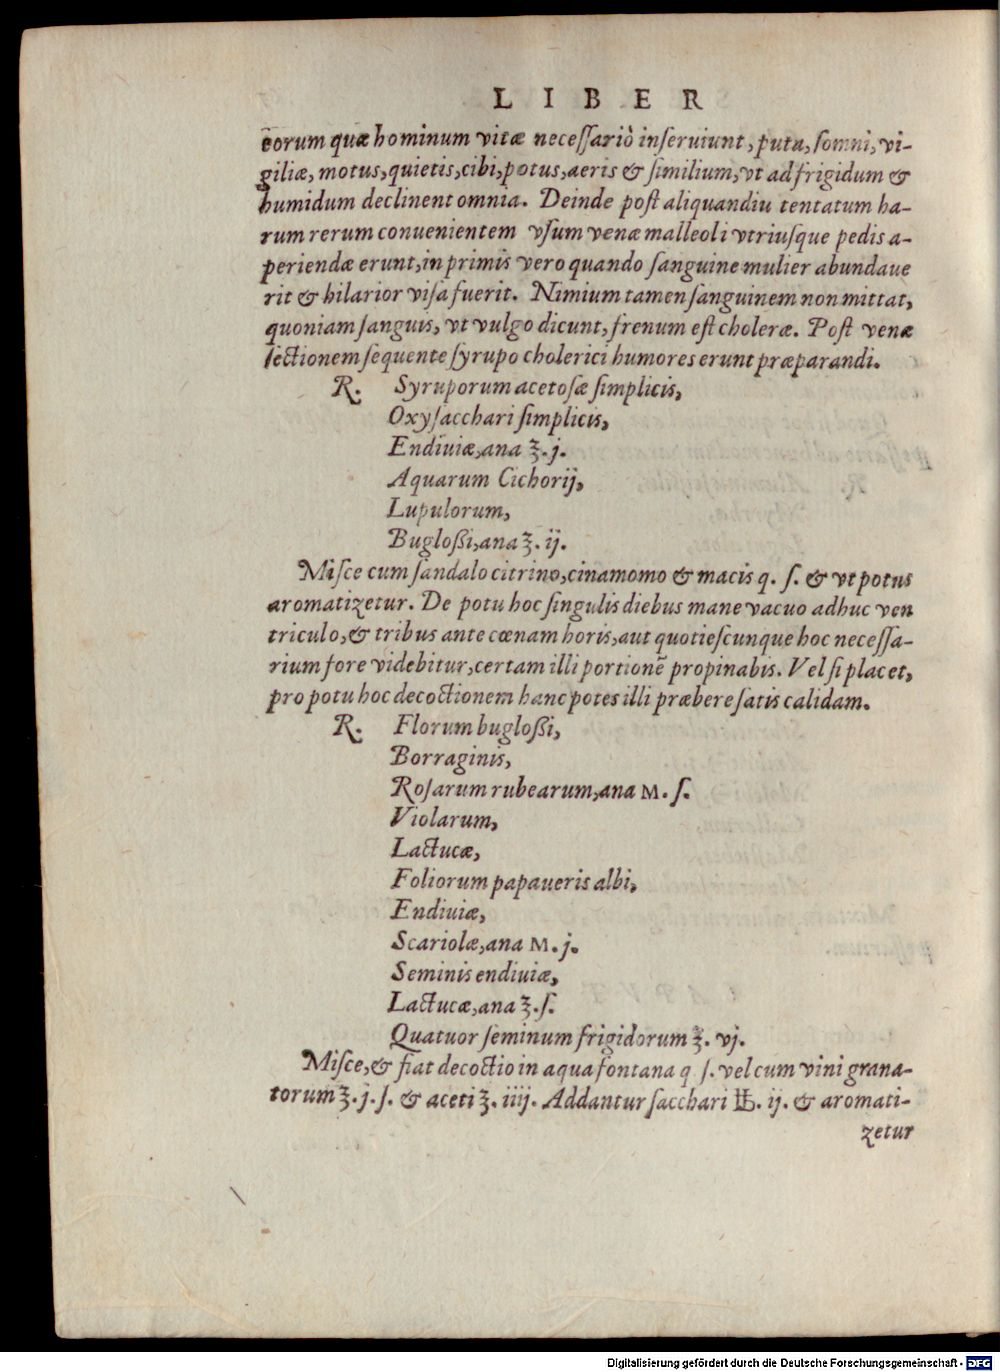 LIBER
eorum quæ hominum vitæ necessariò inseruiunt, puta, somni, vi-
giliæ, motus, quietis, cibi, potus, aeris & similium, vt ad frigidum &
humidum declinent omnia. Deinde post aliquandiu tentatum ha-
rum rerum conuenientem vsum venæ malleoli vtriusque pedis a-
periendæ erunt, in primis vero quando sanguine mulier abundaue
rit & hilarior visa fuerit. Nimium tamen sanguinem non mittat,
quoniam sanguis, vt vulgo dicunt, frenum est choleræ. Post venæ
sectionem sequente syrupo cholerici humores erunt præparandi.
R. Syruporum acetosæ simplicis,
Oxysacchari simplicis,
Endiuiæ, ana ℥. j.
Aquarum Cichorij,
Lupulorum,
Buglossi, ana ℥. ij.
Misce cum sandalo citrino, cinamomo & macis q. s. & vt potus
aromatizetur. De potu hoc singulis diebus mane vacuo adhuc ven
triculo, & tribus ante cœnam horis, aut quotiescunque hoc necessa-
rium fore videbitur, certam illi portionē propinabis. Vel si placet,
pro potu hoc decoctionem hanc potes illi præbere satis calidam.
R. Florum buglossi,
Borraginis,
Rosarum rubearum, ana M. s.
Violarum,
Lactucæ,
Foliorum papaueris albi,
Endiuiæ,
Scariolæ, ana M. j.
Seminis endiuiæ,
Lactucæ, ana ℥. s.
Quatuor seminum frigidorum ℥. vj.
Misce, & fiat decoctio in aqua fontana q s. vel cum vini grana-
torum ℥. j. s. & aceti ℥. iiij. Addantur sacchari ℔. ij. & aromati-
zetur
Digitalisierung gefördert durch die Deutsche Forschungsgemeinschaft - DFG